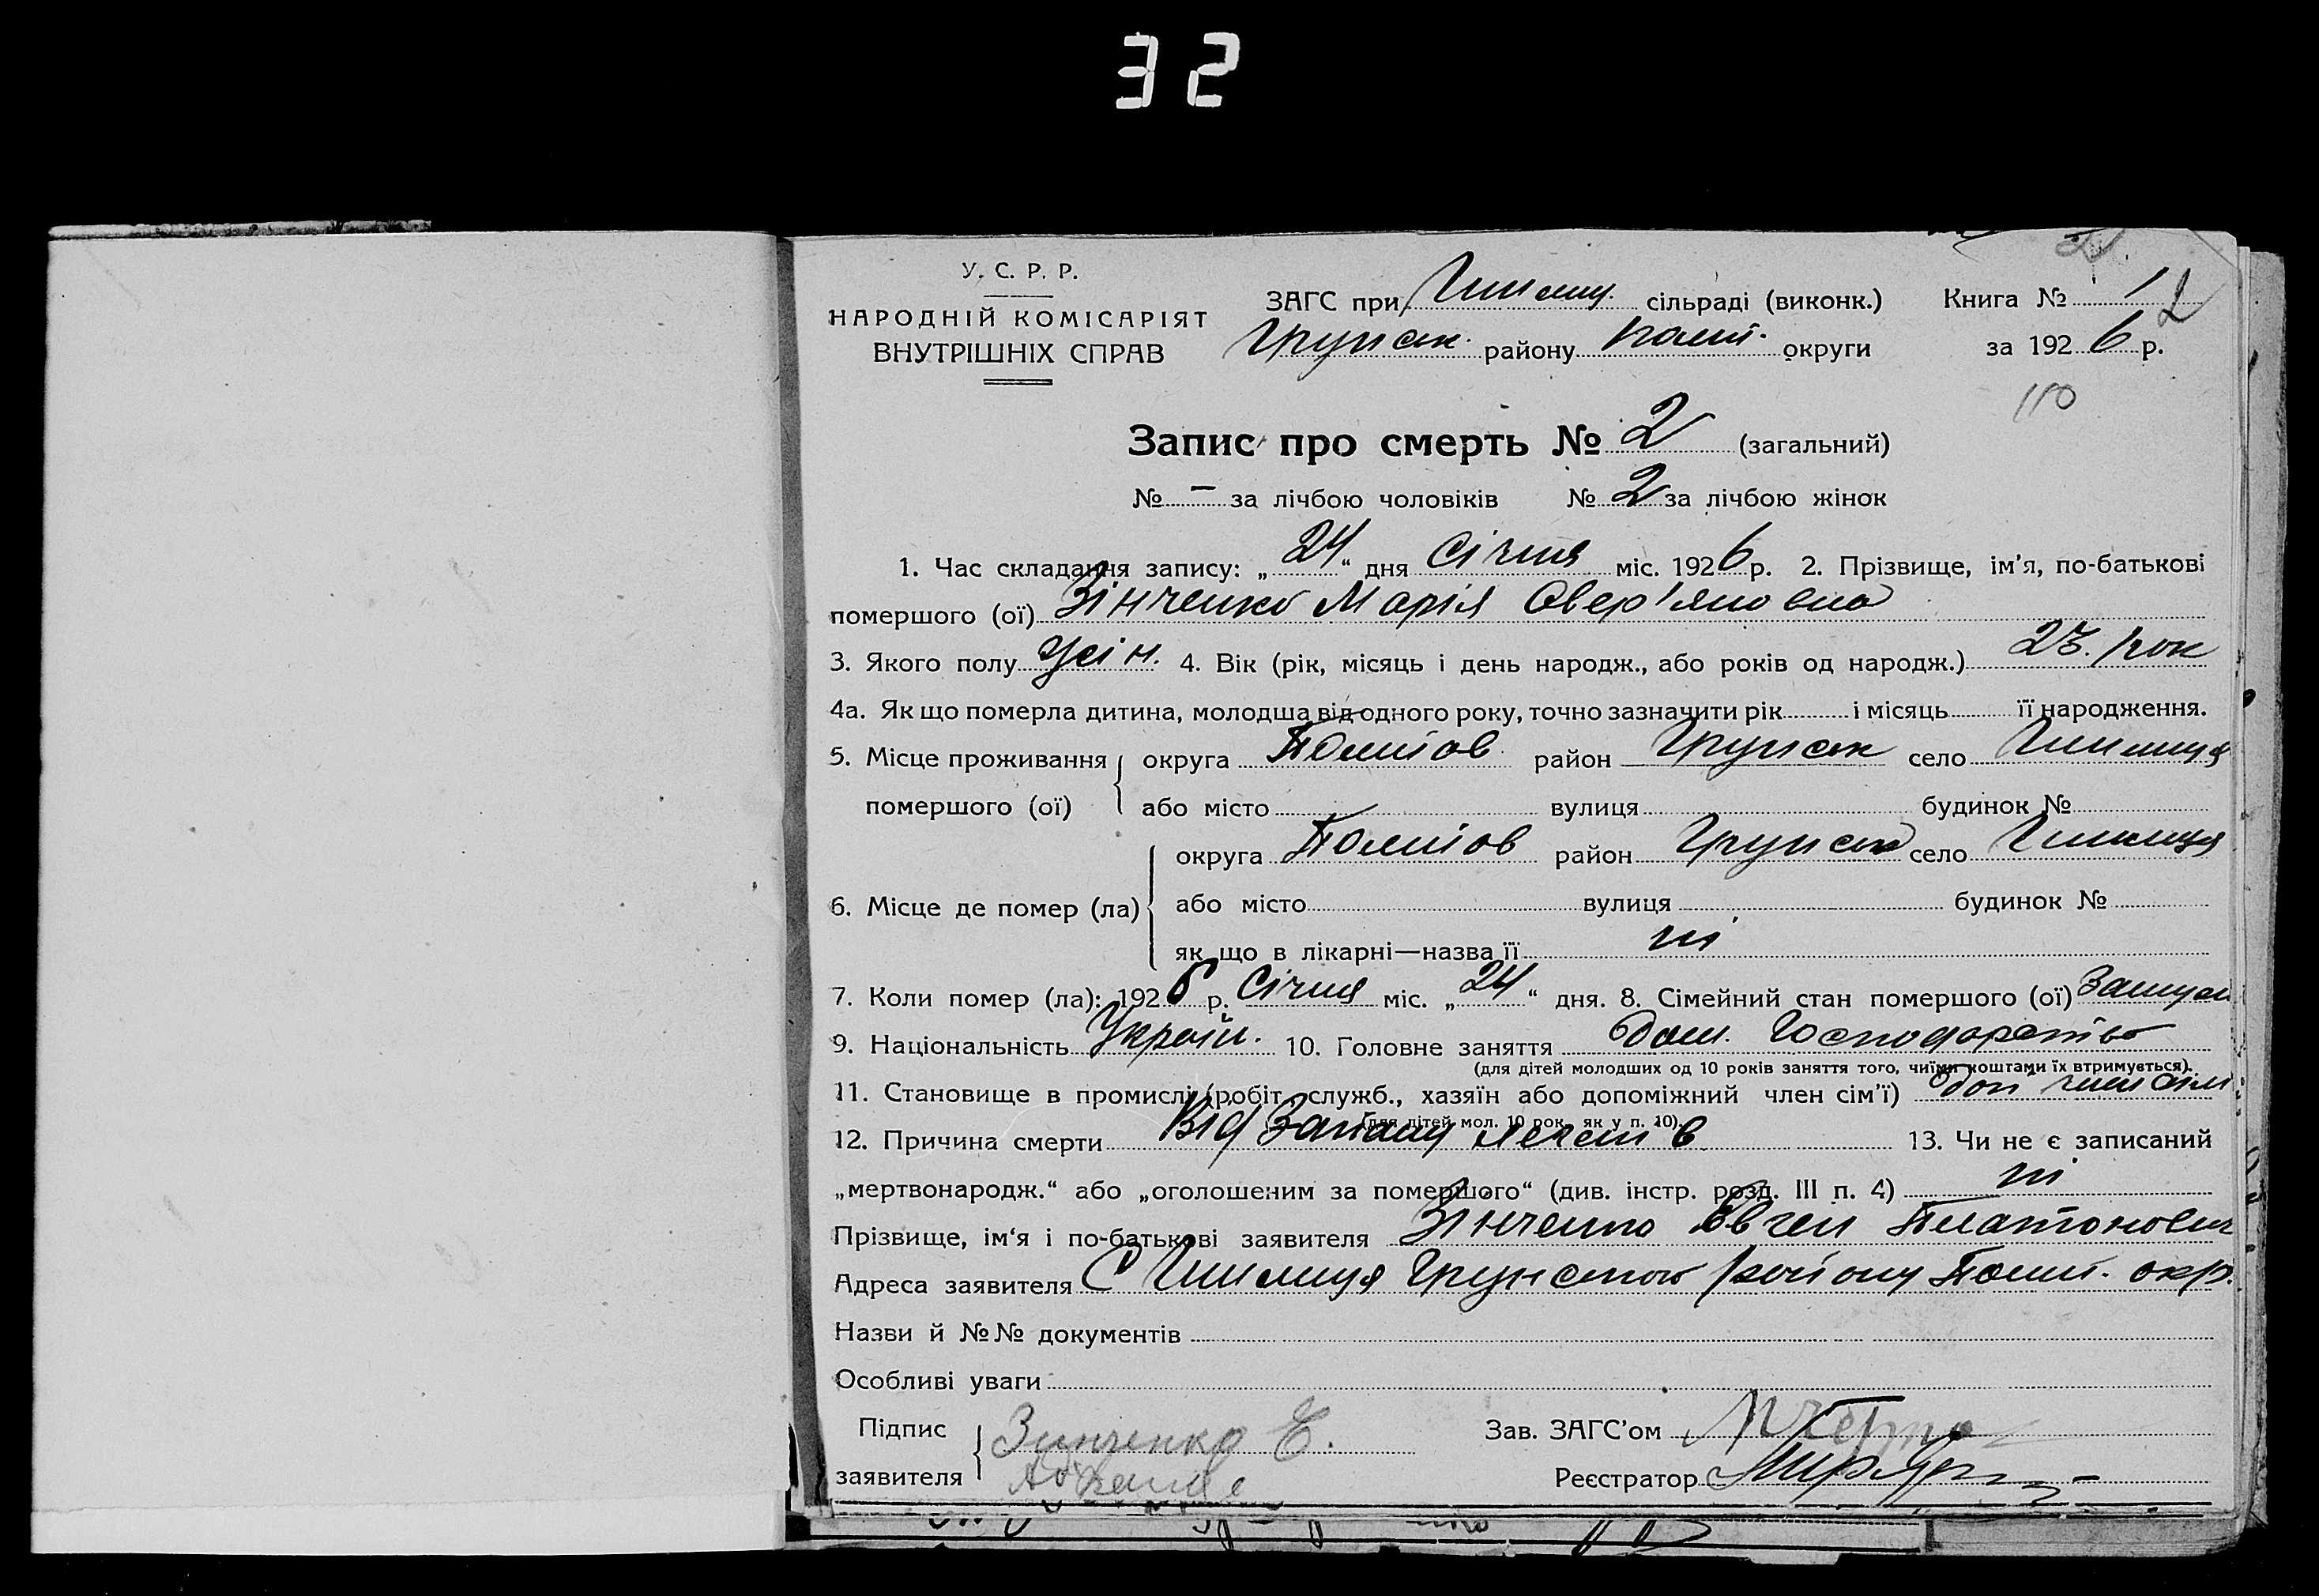 32
У. С. Р. Р.
НАРОДНІЙ КОМІСАРІЯТ
ВНУТРІШНІХ СПРАВ
ЗАГС при сільраді (виконк.) Книга № 1
Грунськ. району Полт. округи за 1926 р.
110
Запис про смерть № 2 (загальний)
№ – за лічбою чоловіків № 2 за лічбою жінок
1. Час складання запису: „24“ дня Січня міс. 1926 р. 2. Прізвище, ім’я, по-батькові
помершого (ої) Зінченко Марія Овер'яновна
3. Якого полу жін. 4. Вік (рік, місяць і день народж., або років од народж.) 23. рок
4а. Як що померла дитина, молодша від одного року, точно зазначити рік і місяць її народження.
5. Місце проживання помершого (ої) округа Полтов район Грунськ село
або місто вулиця будинок №
6. Місце де помер (ла) округа Полтов район Грунськ село
або місто вулиця будинок №
як що в лікарні—назва її ні
7. Коли помер (ла): 1926 р. Січня міс. „24“ дня. 8. Сімейний стан помершого (ої)
9. Національність Україн. 10. Головне заняття дом. Господарство
(для дітей молодших од 10 років заняття того, чиїми коштами їх втримується).
11. Становище в промислі (робіт., служб., хазяїн або допоміжний член сім’ї) доп член сім
(для дітей мол. 10 рок. як у п. 10).
12. Причина смерти Від Запалу легенів 13. Чи не є записаний
„мертвонародж.“ або „оголошеним за помершого“ (див. інстр. розд. III п. 4) ні
Прізвище, ім‘я і по-батькові заявителя Зінченко Евген Платонович
Адреса заявителя С Грунського району Полт. окр.
Назви й №№ документів
Особливі уваги
Підпис заявителя Зинченко Е.
Зав. ЗАГС’ом
Реєстратор